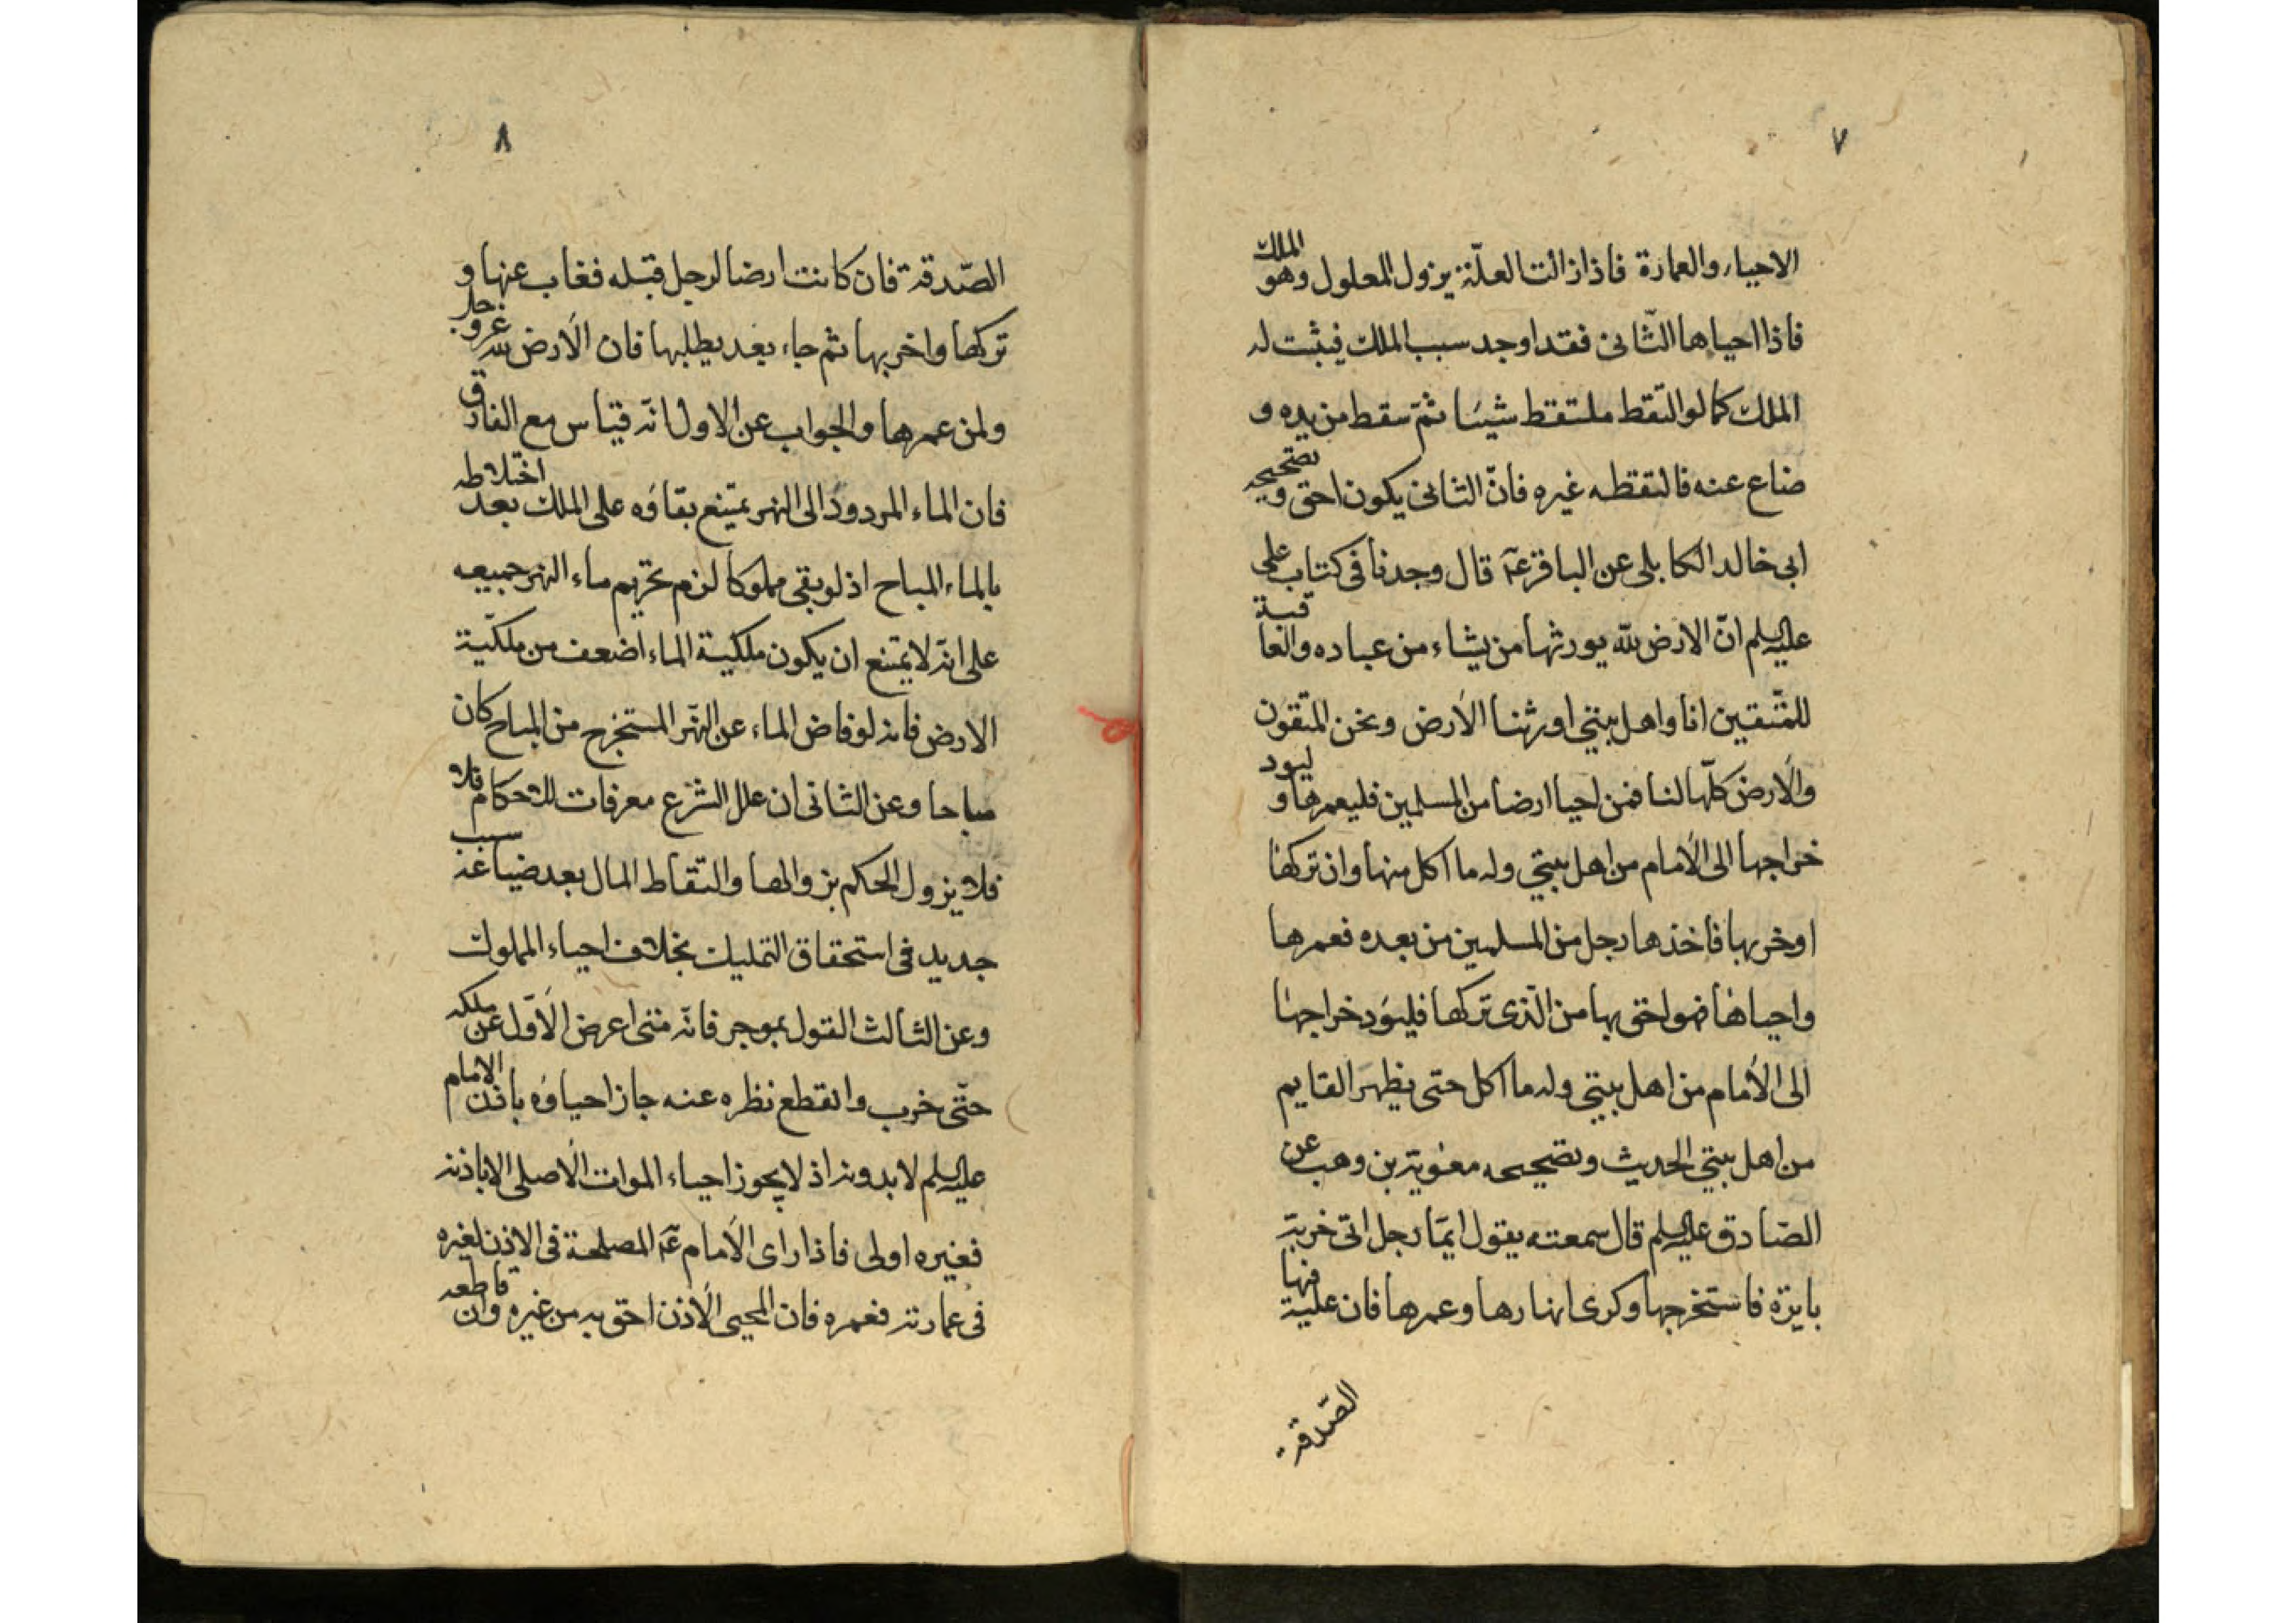 ٧
الاحياء والعمارة فاذا زالت العلّة يزول المعلول وهو الملك
فاذا احياها الثّانى فقد اوجد سبب الملك فيثبت له
الملك كما لو التقط ملتقط شيئا ثمّ سقط من يده و
ضاع عنه فالتقطه غيره فانّ الثانى يكون احق ولصحيحه
ابى خالد الكابلى عن الباقر عه قال وجدنا فى كتاب على
عليه السلم انّ الارض لله يورثها من يشاء من عباده والعاقبة
للمتّقين انا واهل بيتى اورثنا الارض ونحن المتقون
والارض كلّها لنا فمن احيا ارضا من المسلمين فليعمرها و ليود
خراجها الى الامام من اهل بيتى وله ما اكل منها وان تركها
او خربها فاخذها رجل من المسلمين من بعده فعمرها
واحياها فهو احق بها من الّذى تركها فليؤد خراجها
الى الامام من اهل بيتى وله ما اكل حتى يظهر القايم
من اهل بيتى الحديث ولصحيحه معوية بن وهب عن
الصّادق عليه السلم قال سمعته يقول ايّما رجل اتى خربة
بايرة فاستخرجها وكرى انهارها وعمرها فان عليه فيها
الصّدقة
٨
الصّدقة فان كانت ارضا لرجل قبله فغاب عنها و
تركها واخربها ثم جاء بعد يطلبها فان الارض لله عزوجل
ولمن عمرها والجواب عن الاول انّه قياس مع الفارق
فان الماء المردود الى النهر يمتنع بقاؤه على الملك بعد اختلاطه
بالماء المباح اذ لو بقى مملوكا لزم تحريم ماء النهر جميعه
على انّه لا يمتنع ان يكون ملكية الماء اضعف من ملكيّة
الارض فانه لو فاض الماء عن النهر المستخرج من المباح كان
مباحا وعن الثانى ان علل الشرع معرفات للاحكام فلا
فلا يزول الحكم بزوالها والتقاط المال بعد ضياعه سبب
جديد فى استحقاق التمليك بخلاف احياء المملوك
وعن الثالث القول بموجبه فانّه متى اعرض الاوّل عن ملكه
حتّى خرب وانقطع نظره عنه جاز احياؤه باذن الامام
عليه السلم لا بدونه اذ لا يجوز احياء الموات الاصلى الا باذنه
فغيره اولى فاذا راى الامام عه المصلحة فى الاذن لغيره
فى عمارته فعمره فان المحيى الاذن احق به من غيره وان قاطعه